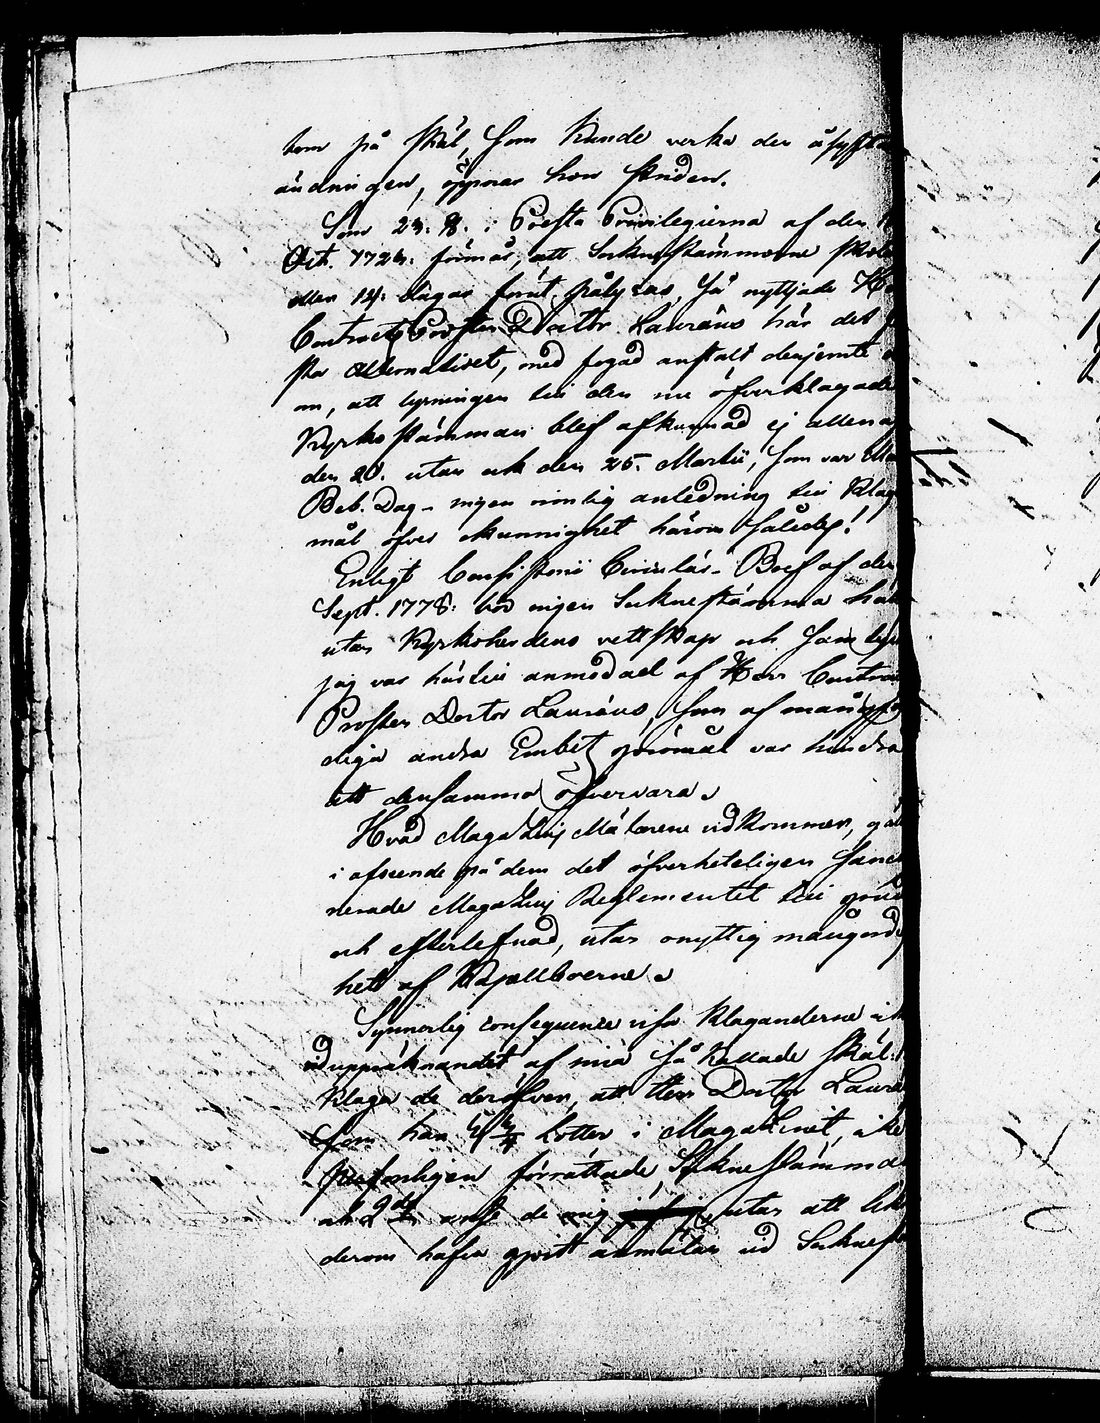 tom på skäl, som kunde verka den åsyfta
ändringen, öppnar hon struden.
Som 23. §. i Presta Privilegierna af den 1
Oct. 1723. förmår, att Sokne stämmorne skola
eller 14. dagar förut pålysas, så nyttjade H
Contracts Prosten Doctor Lauræus här det f
sta alternativet, med fogad anstalt derjemte
om, att lysningen till den nu öfverklagade
Kyrko stämman blef afkunnad ej allena
den 20. utan och den 25. Martii, som var Ma
Beb. Dag - ingen rimlig anledning till klag
mål öfver okunnighet härom således!
Enligt Consistorii Circulär-Bref af den
Sept. 1778. bör ingen Sokne stämma hål
utan Kyrkoherdens vettskap och sam
jag var härtill anmodad af Herr Contra
Prosten Doctor Lauræus, som af mångfa
diga andra Embets göromål var hindra
att densamma öfvervara.
Hvad Magazins Mätarene vidkommer, gäl
i afseende på dem det öfverheteligen sanc
nerade Magazins Reglementet till grun
och efterlefnad, utan onyttig mångord
het af Kajallboerne.
Synnerlig consequence visa Klaganderne i
vid uppräknandet af mina så kallade skäl: 1
klaga de deröfver, att Herr Doctor Lauræ
som har 4 Lotter i Magazinet, icke
personligen förrättade Sokne stämma
och 2do de mig utan att
derom hafva gjort anmälan vid Soknest